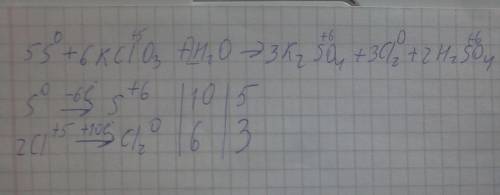 5S⁰ + 6KCl⁺⁵O₃ + H₂O → 3K₂S⁺⁶O₄ + 3Cl₂⁰ + 2H₂S⁺⁶O₄
S⁰ –6ē→ S⁺⁶ | 10 | 5
2Cl⁺⁵ +10ē→ Cl₂⁰ | 6 | 3